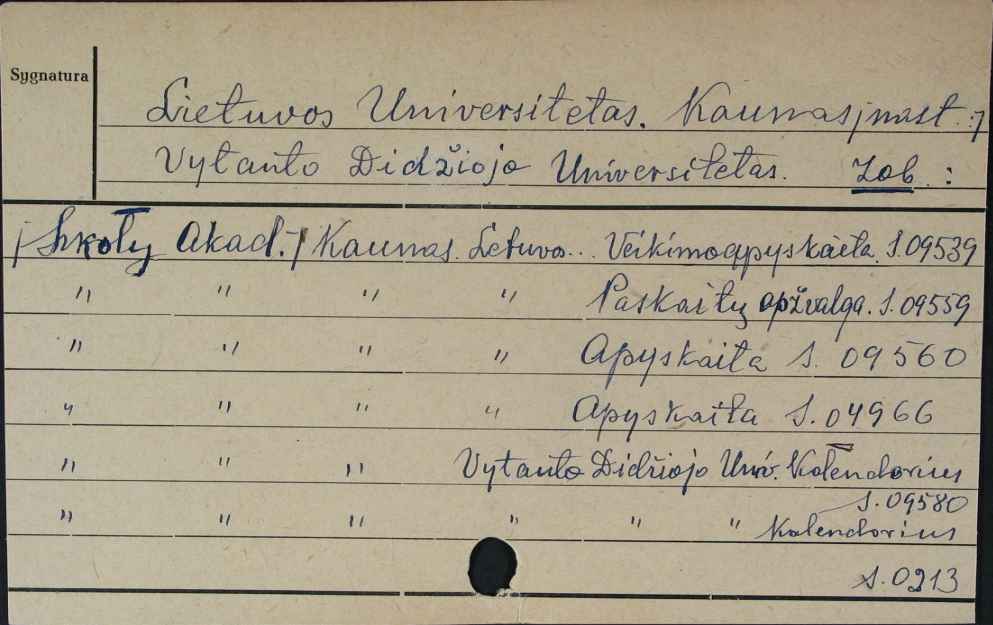 Sygnatura
Lietuvos Universitetas. Kaunas [nast.:]
Vytauto Didžiojo Universitetas. Zob.:
[Szkoły Akad.] Kaunas. Letuvo... Veikimo apyskaita. S.09539
" " " " Paskaitų apžvalga. S.09559
" " " " Apyskaita S. 09560
" " " " Apyskaita S. 04966
" " " Vytauto Didžiojo Univ. Kalendorius
S.09580
" " " " " " Kalendorius
S.0213